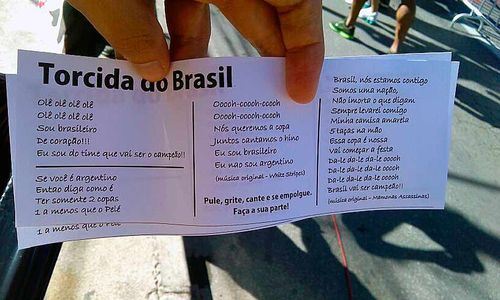 Torcida do Brasil
Olê olê olê olê
Olê olê olê olê
Sou brasileiro
De coração!!!
Eu sou do time que vai ser o campeão!!
Se você é argentino
Então diga como é
Ter somente 2 copas
1 a menos que o Pelé
1 a menos que o Pelé
Ooooh-ooooh-ooooh
Ooooh-ooooh-ooooh
Nós queremos a copa
Juntos cantamos o hino
Eu sou brasileiro
Eu não sou argentino
(música original - White Stripes)
Pule, grite, cante e se empolgue.
Faça a sua parte!
Brasil, nós estamos contigo
Somos uma nação,
Não imorta o que digam
Sempre levarei comigo
Minha camisa amarela
5 taças na mão
Essa copa é nossa
Vai começar a festa
Da-le da-le da-le ooooh
Da-le da-le da-le ooooh
Da-le da-le da-le ooooh
Brasil vai ser campeão!!
(música original - Mamonas Assassinas)